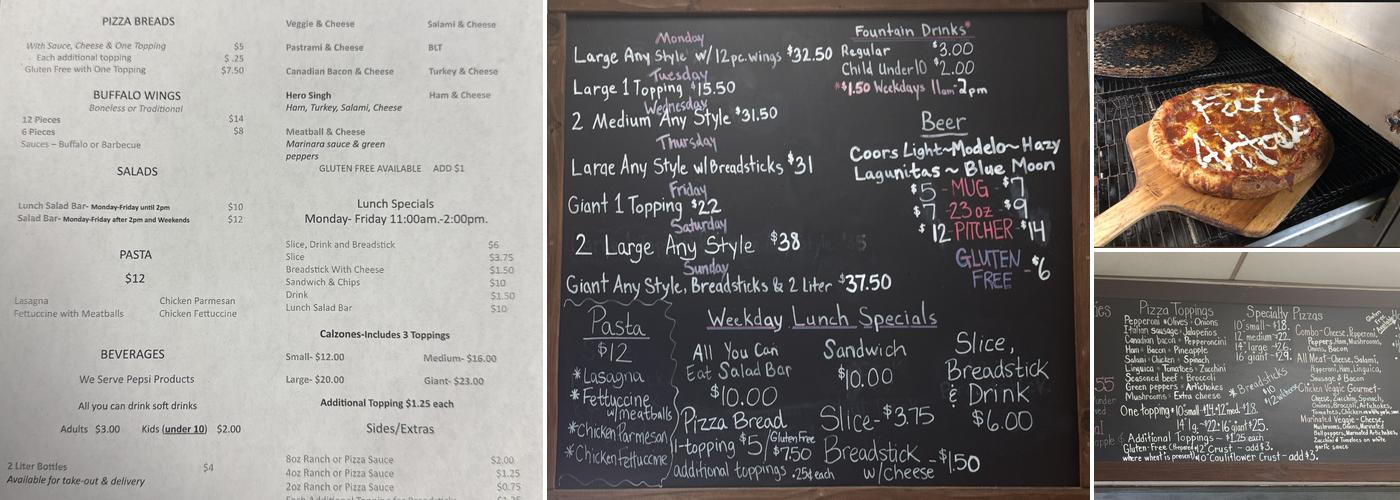 PIZZA BREADS
With Sauce, Cheese & One Topping $5
Each additional topping $ .25
Gluten Free with One Topping $7.50
BUFFALO WINGS
Boneless or Traditional
12 Pieces $14
6 Pieces $8
Sauces – Buffalo or Barbecue
SALADS
Lunch Salad Bar- Monday-Friday until 2pm $10
Salad Bar- Monday-Friday after 2pm and Weekends $12
PASTA
$12
Lasagna Chicken Parmesan
Fettuccine with Meatballs Chicken Fettuccine
BEVERAGES
We Serve Pepsi Products
All you can drink soft drinks
Adults $3.00 Kids (under 10) $2.00
2 Liter Bottles $4
Available for take-out & delivery
Veggie & Cheese Salami & Cheese
Pastrami & Cheese BLT
Canadian Bacon & Cheese Turkey & Cheese
Hero Singh Ham & Cheese
Ham, Turkey, Salami, Cheese
Meatball & Cheese
Marinara sauce & green
peppers
GLUTEN FREE AVAILABLE ADD $1
Lunch Specials
Monday- Friday 11:00am.-2:00pm.
Slice, Drink and Breadstick $6
Slice $3.75
Breadstick With Cheese $1.50
Sandwich & Chips $10
Drink $1.50
Lunch Salad Bar $10
Calzones-Includes 3 Toppings
Small- $12.00 Medium- $16.00
Large- $20.00 Giant- $23.00
Additional Topping $1.25 each
Sides/Extras
8oz Ranch or Pizza Sauce $2.00
4oz Ranch or Pizza Sauce $1.25
2oz Ranch or Pizza Sauce $0.75
Monday
Large Any Style w/12pc.wings $32.50
Tuesday
Large 1 Topping $15.50
Wednesday
2 Medium Any Style $31.50
Thursday
Large Any Style w/Breadsticks $31
Friday
Giant 1 Topping $22
Saturday
2 Large Any Style $38
Sunday
Giant Any Style, Breadsticks & 2 Liter $37.50
Fountain Drinks*
Regular $3.00
Child Under 10 $2.00
*$1.50 Weekdays 11am-2pm
Beer
Coors Light~Modelo~Hazy
Lagunitas ~ Blue Moon
$5 - MUG - $7
$7 - 23 oz - $9
$12-PITCHER-$14
GLUTEN
FREE - $6
Pasta
$12
*Lasagna
*Fettuccine
w/meatballs
*Chicken Parmesan
*Chicken Fettuccine
Weekday Lunch Specials
All You Can
Eat Salad Bar
$10.00
Sandwich
$10.00
Slice,
Breadstick
& Drink
$6.00
Pizza Bread
1-topping $5/Gluten Free $7.50
additional toppings .25¢ each
Slice-$3.75
Breadstick
w/cheese -$1.50
Fat
Attack
Pizza Toppings
Pepperoni Olives Onions
Italian Sausage Jalapeños
Canadian bacon Pepperoncini
Ham Bacon Pineapple
Salami Chicken Spinach
Linguica Tomatoes Zucchini
Seasoned beef Broccoli
Green peppers Artichokes
Mushrooms Extra cheese
One topping 10"small-$14 12"med-$18.
14"lg.-$22. 16"giant $25.
Additional Toppings - $1.25 each
Gluten-Free 12" Crust - add $3.
where wheat is present 10" Cauliflower Crust - add $3.
Specialty Pizzas
10" small-$18.
12" medium-$22.
14" large-$26.
16" giant-$29.
* Breadsticks
Combo-Cheese, Pepperoni,
Peppers, Ham, Mushrooms,
Onions, Bacon
All Meat-Cheese, Salami,
Pepperoni, Ham, Linguica,
Sausage & Bacon
Chicken Veggie Gourmet-
Cheese, Zucchini, Spinach,
Onions, Broccoli, Artichokes,
Marinated Veggie - Cheese,
Mushrooms, Onions, Marinated
Bell peppers, Marinated Artichokes,
Zucchini & Tomatoes on white
garlic sauce